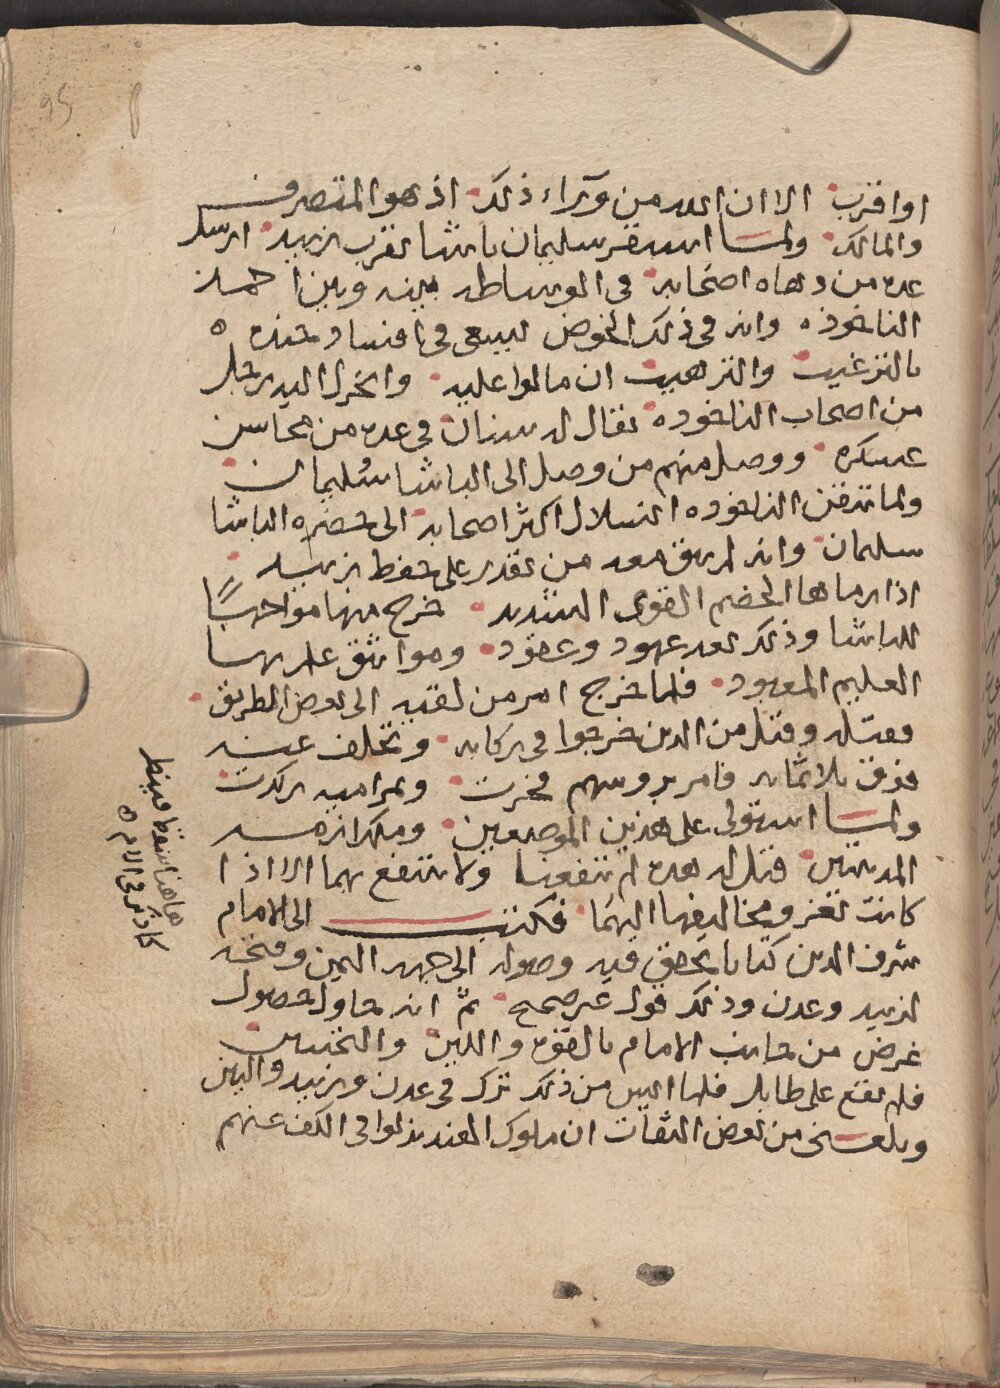 او اقرب الا ان الله من ورآء ذلك اذ هو المتصرف
والمالك ولمـا استقر سليمان باشا بقرب زبيد ارسل
عده من دهاه اصحابه في الوساطه بينه وبين احمد
الناخوذه وانه في ذلك الخوض ليسعى في افساد جنده ه
بالترغيب والترهيب ان مالوا عليه وانخزل اليه رجل
من اصحاب الناخوذه يقال له سنان في عده من محاسن
عسكره ووصل منهم من وصل الى الباشا سليمان
ولما تيقن الناخوذه انسلال اكثر اصحابه الى حضره الباشا
سليمان وانه لم يبق معه من يقدر على حفظ زبيد
اذا رماها الخصم القوى الشديد خرج منها مواجهًا
للباشا وذلك بعد عهود وعقود ومواثيق علم بها
العليم المعبود فلما خرج امر من لقيه الى بعض الطريق
فقتله وقتل من الذين خرجوا في ركابه وتخلف عنه
فوق ثلاثمائه فامر بروسهم فحزت
ولمـا استولى على هذين الموضعين وملك ازمه
المدينتين قيل له هذه لم تنفعنا ولا ننتفع بهما الا اذا
كانت تعز ومخاليفها اليهما فكتب الى الامام
شرف الدين كتابا يحقق فيه وصوله الى جهه اليمن وفتحه
لزبيد وعدن وذلك قول غير صحيح ثم انه حاول حصول
غرض من جانب الامام بالقوه واللين والتخشين
فلم يقع على طايل فلما ايس من ذلك ترك في عدن وزبيد واليين
وبلغـنى من بعض الثقات ان ملوك الهند بذلوا في الكف عنهم
هاهنا سقط فينظر
كا ذكر في الام ه
95